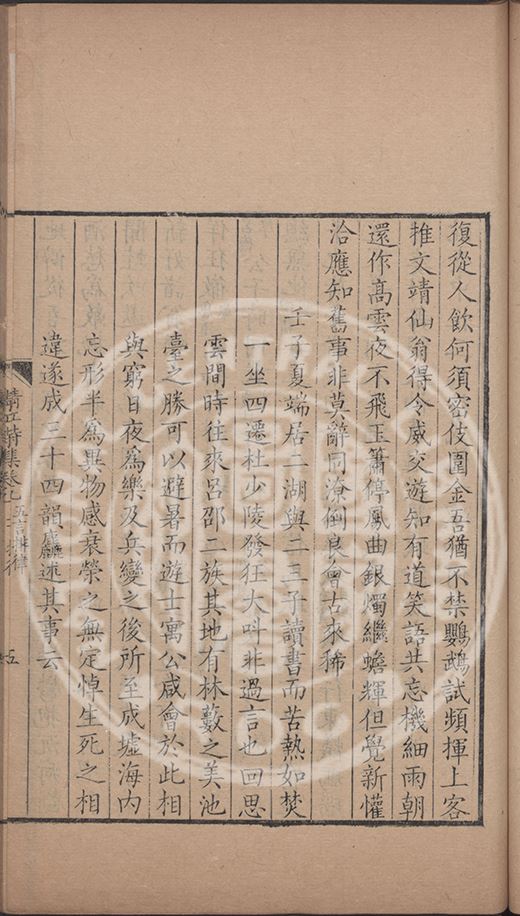 復從人飲何須密伎圍金吾猶不禁鸚鵡試頻揮上客
推文靖仙翁得令威交遊知有道笑語共忘機細雨朝
還作高雲夜不飛玉簫停鳳曲銀燭繼蟾輝但覺新懽
洽應知舊事非莫辭同潦倒良會古來稀
壬子夏端居二湖與二三子讀書而苦熱如焚
一坐四遷杜少陵發狂大呌非過言也回思
雲間時往來呂邵二族其地有林藪之美池
臺之勝可以避暑而遊士寓公咸會於此相
與窮日夜為樂及兵變之後所至成墟海内
忘形半為異物感衰榮之無定悼生死之相
違遂成三十四韻麤述其事云
清江詩集卷九 五言排律
五